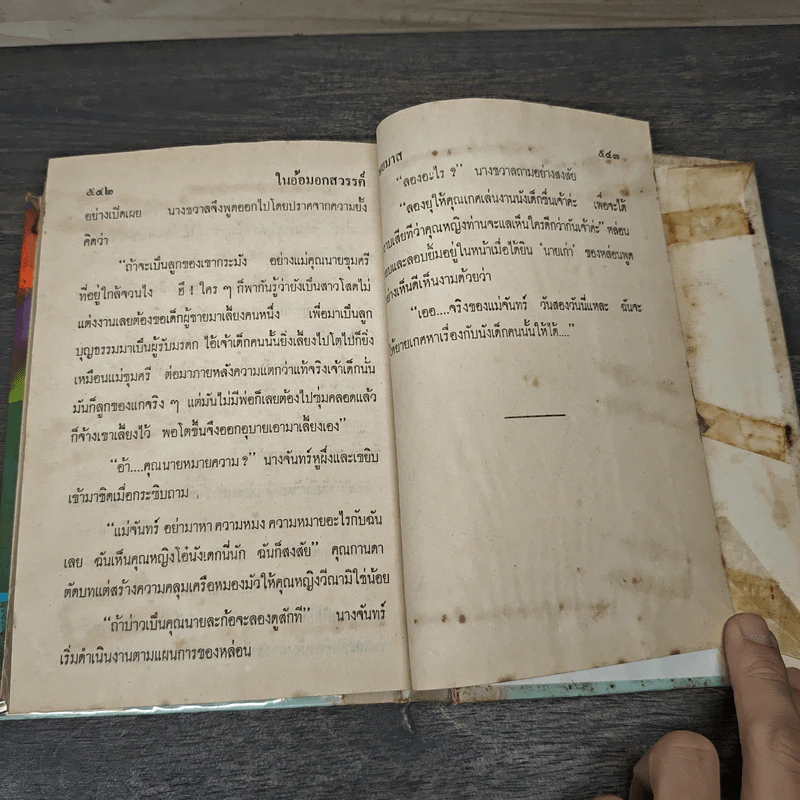 ๕๔๒
ในอ้อมอกสวรรค์
อย่างเปิดเผย นางชวาลจึงพูดออกไปโดยปราศจากความยั้ง
คิดว่า
“ถ้าจะเป็นลูกของเขากระมัง อย่างแม่คุณนายชุมศรี
ที่อยู่ใกล้จวนไง ฮึ ! ใคร ๆ ก็พากันรู้ว่ายังเป็นสาวโสดไม่
แต่งงานเลยต้องขอเด็กผู้ชายมาเลี้ยงคนหนึ่ง เพื่อมาเป็นลูก
บุญธรรมมาเป็นผู้รับมรดก ไอ้เจ้าเด็กคนนั้นยิ่งเลี้ยงไปโตไปก็ยิ่ง
เหมือนแม่ชุมศรี ต่อมาภายหลังความแตกว่าแท้จริงเจ้าเด็กนั่น
มันก็ลูกของแกจริง ๆ แต่มันไม่มีพ่อก็เลยต้องไปซุ่มคลอดแล้ว
ก็จ้างเขาเลี้ยงไว้ พอโตขึ้นจึงออกอุบายเอามาเลี้ยงเอง”
“อ้า....คุณนายหมายความ ?” นางจันทร์หูผึ่งและเขยิบ
เข้ามาชิดเมื่อกระซิบถาม
“แม่จันทร์ อย่ามาหา ความหมง ความหมายอะไรกับฉัน
เลย ฉันเห็นคุณหญิงโอ๋นังเด็กนี่นัก ฉันก็สงสัย” คุณกานดา
ตัดบทแต่สร้างความคลุมเครือหมองมัวให้คุณหญิงวีณามิใช่น้อย
“ถ้าบ่าวเป็นคุณนายละก้อจะลองดูสักที” นางจันทร์
เริ่มดำเนินงานตามแผนการของหล่อน
๕๔๓
“ลองอะไร ?” นางชวาลถามอย่างสงสัย
“ลองยุให้คุณเกศเล่นงานนังเด็กขึ้นเจ้าค่ะ เพื่อจะได้
เสียทีว่าคุณหญิงท่านจะแลเห็นใครดีกว่ากันเจ้าค่ะ” หล่อน
และลอบยิ้มอยู่ในหน้าเมื่อได้ยิน ‘นายเก่า’ ของหล่อนพูด
อย่างเห็นดีเห็นงามด้วยว่า
“เออ....จริงของแม่จันทร์ วันสองวันนี้แหละ ฉันจะ
ให้ยายเกศหาเรื่องกับนังเด็กคนนั้นให้ได้....”